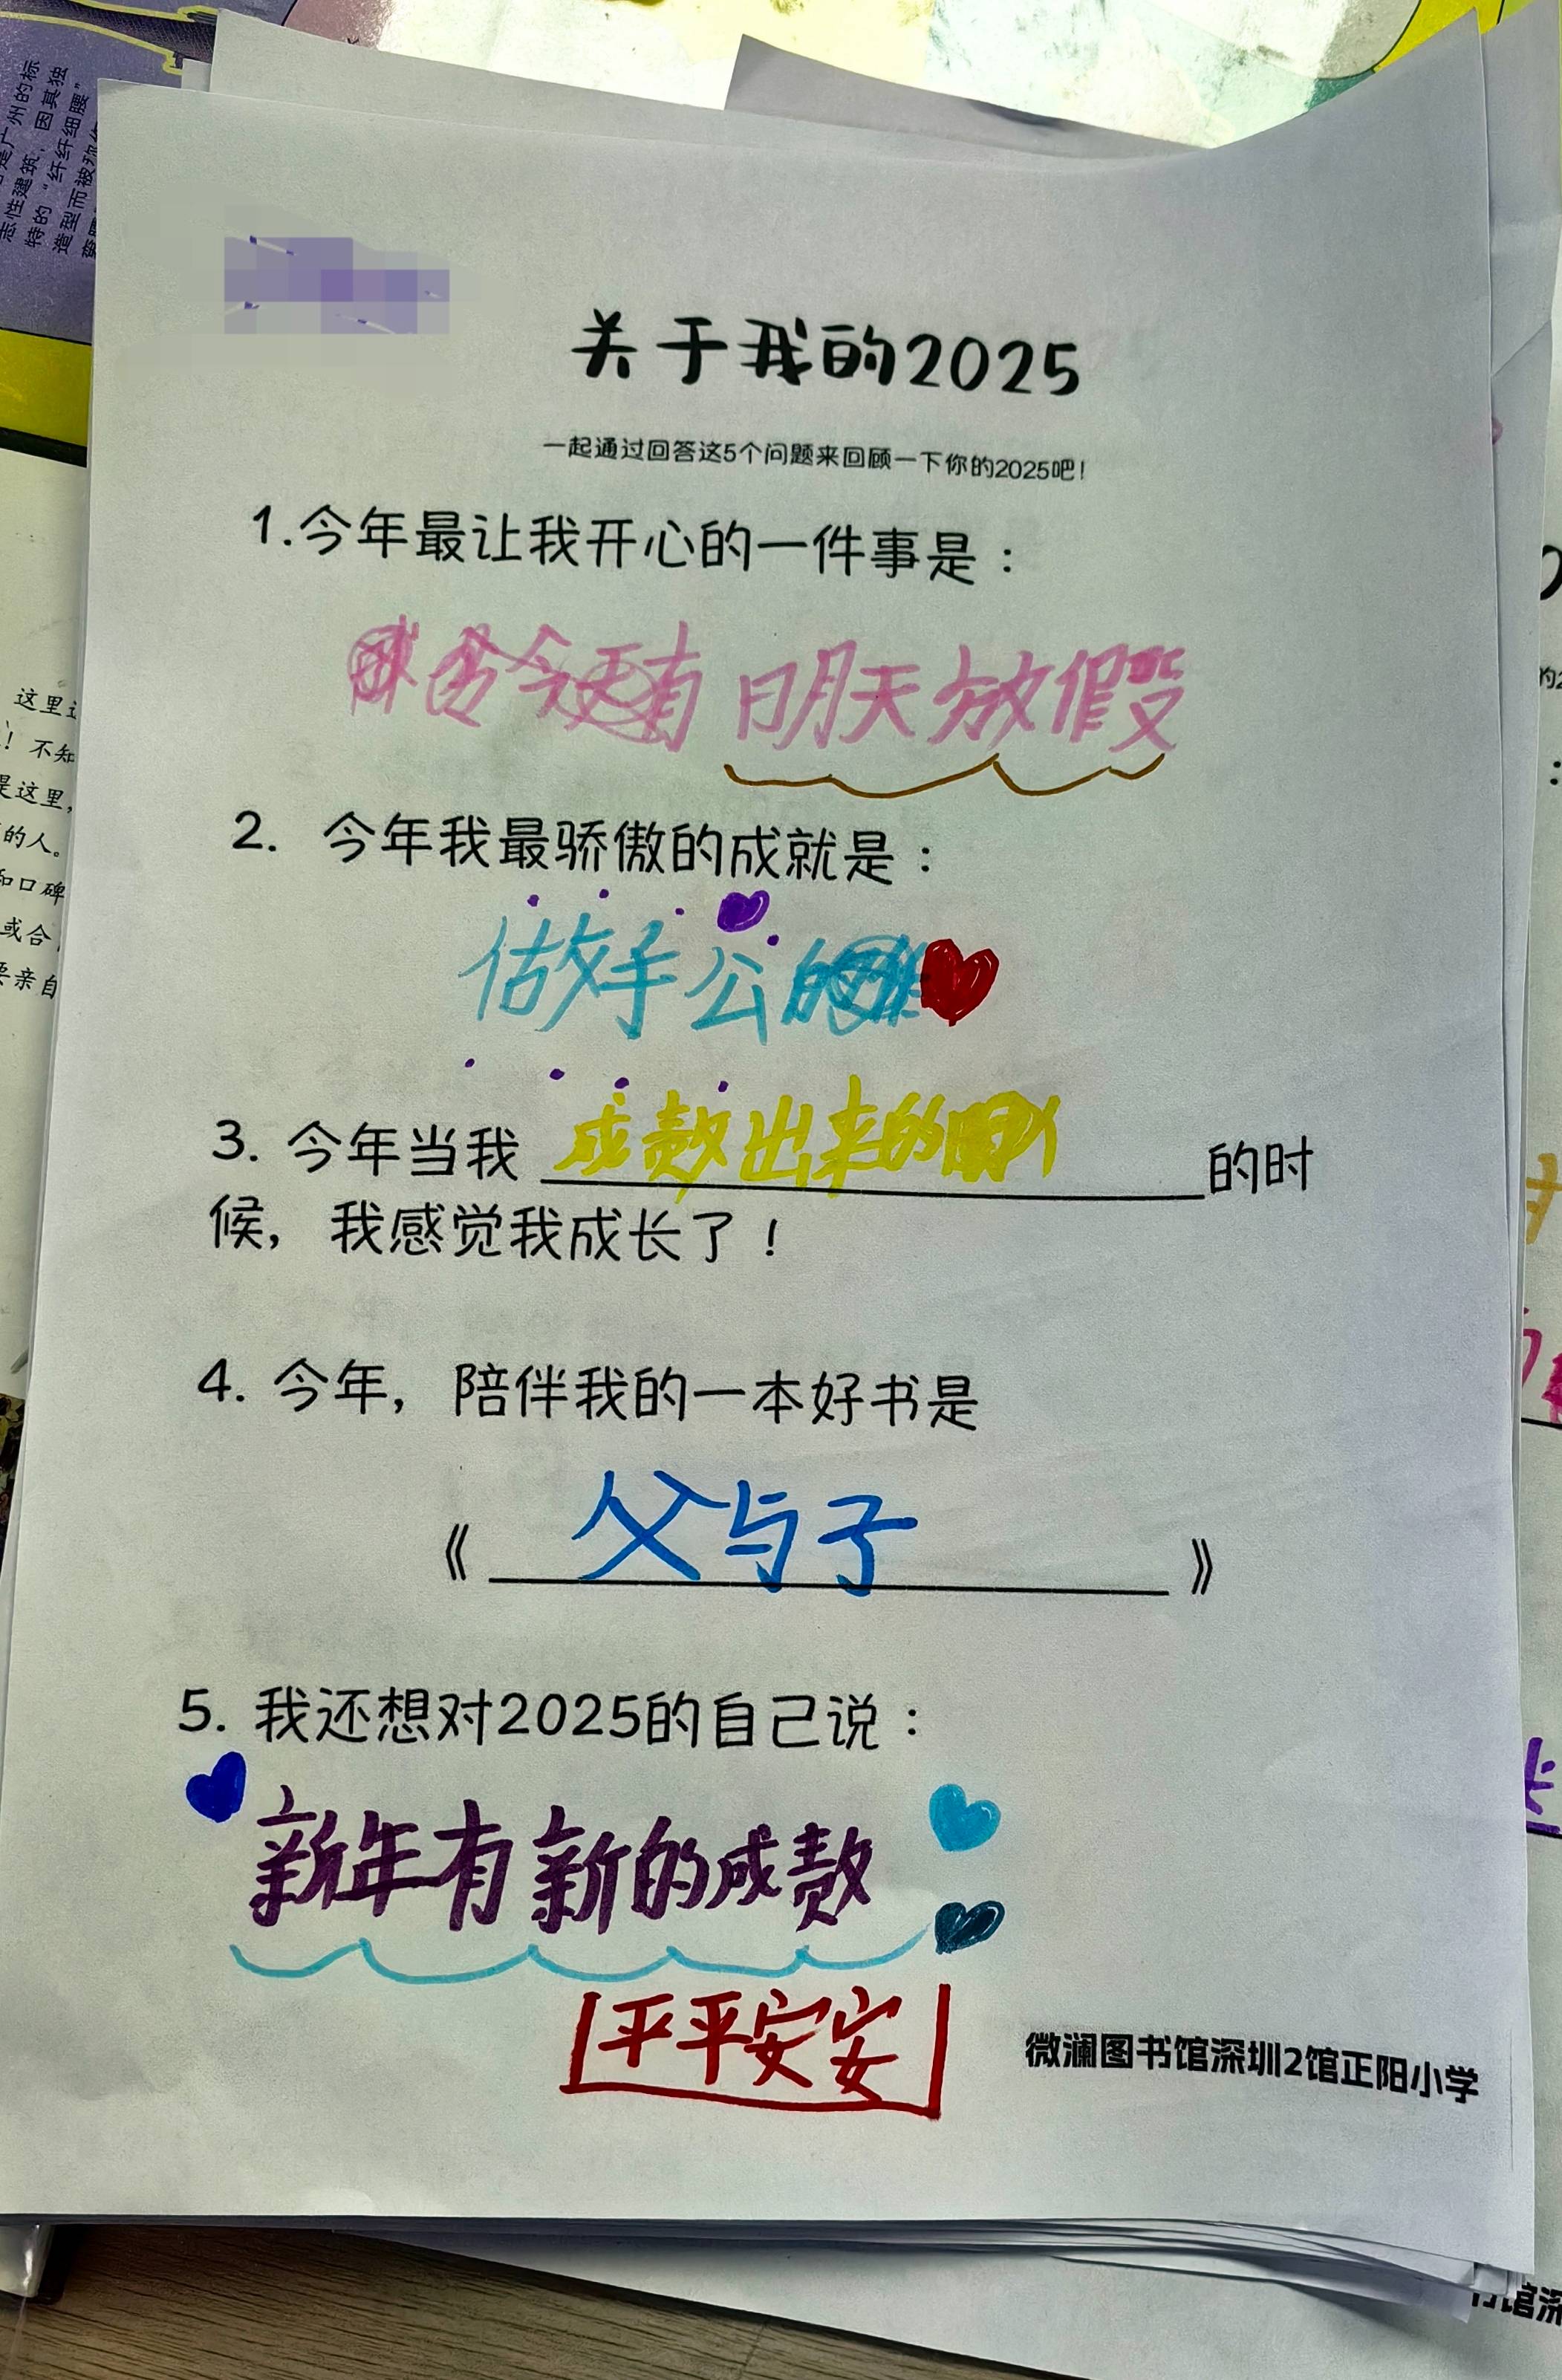 关于我的2025
一起通过回答这5个问题来回顾一下你的2025吧！
1.今年最让我开心的一件事是：
明天放假
2. 今年我最骄傲的成就是：
做手公的
3. 今年当我 出来的 的时
候，我感觉我成长了！
4. 今年，陪伴我的一本好书是
《 父与子 》
5. 我还想对2025的自己说：
新年有新的成
平平安安
微澜图书馆深圳2馆正阳小学